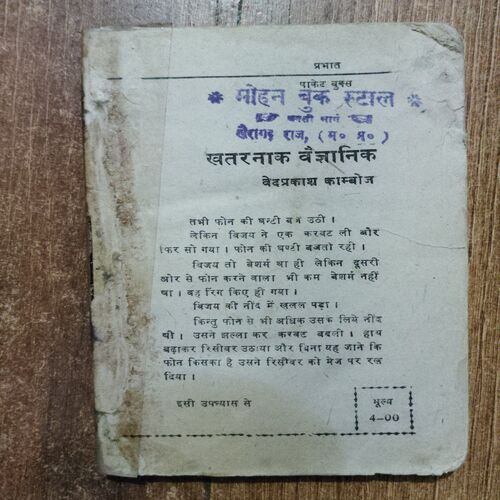 प्रभात
पाकेट बुक्स
* मोहन बुक स्टाल *
बस्ती मार्ग
खैरागढ़ राज, (म० प्र०)
खतरनाक वैज्ञानिक
वेदप्रकाश काम्बोज
तभी फोन की घन्टी बज उठी ।
लेकिन विजय ने एक करवट ली और
फिर सो गया । फोन की घण्टी बजती रही ।
विजय तो बेशर्म था ही लेकिन दूसरी
ओर से फोन करने वाला भी कम बेशर्म नहीं
था । वह रिंग किए ही गया ।
विजय की नींद में खलल पड़ा ।
किन्तु फोन से भी अधिक उसके लिये नींद
थी । उसने झल्ला कर करवट बदली । हाथ
बढ़ाकर रिसीवर उठाया और बिना यह जाने कि
फोन किसका है उसने रिसीवर को मेज पर रख
दिया ।
इसी उपन्यास से
मूल्य
4-00